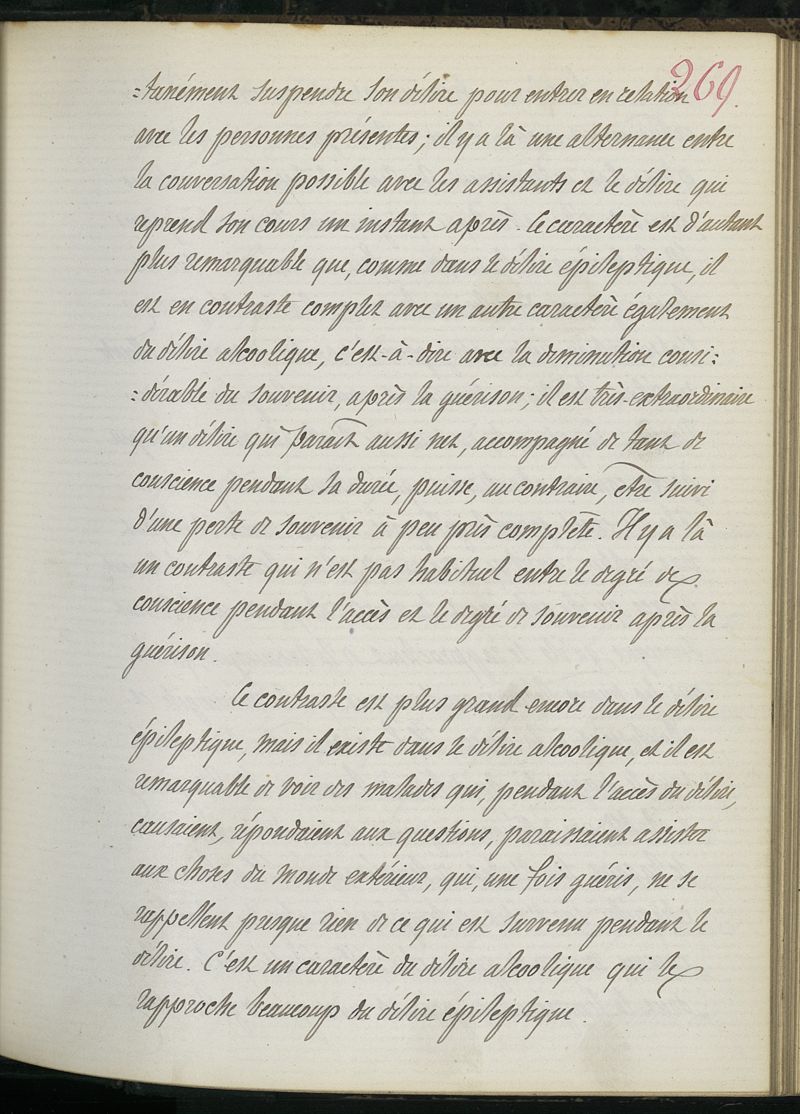 269
=tanément suspendre son délire pour entrer en relation
avec les personnes présentes; il y a là une alternance entre
la conversation possible avec les assistants et le délire qui
reprend son cours un instant après. Ce caractère est d'autant
plus remarquable que, comme dans le délire épileptique, il
est en contraste complet avec un autre caractère également
du délire alcoolique, c'est-à-dire avec la diminution consi=
=dérable du souvenir, après la guérison; il est très-extraordinaire
qu'un délire qui paraît aussi net, accompagné de tant de
conscience pendant sa durée, puisse, au contraire, être suivi
d'une perte de souvenir à peu près complète. Il y a là
un contraste qui n'est pas habituel entre le degré de
conscience pendant l'accès et le degré de souvenir après la
guérison.
Ce contraste est plus grand encore dans le délire
épileptique, mais il existe dans le délire alcoolique, et il est
remarquable de voir des malades qui, pendant l'accès du délire,
causaient, répondaient aux questions, paraissaient assister
aux choses du monde extérieur, qui, une fois guéris, ne se
rappellent presque rien de ce qui est survenu pendant le
délire. C'est un caractère du délire alcoolique qui le
rapproche beaucoup du délire épileptique.